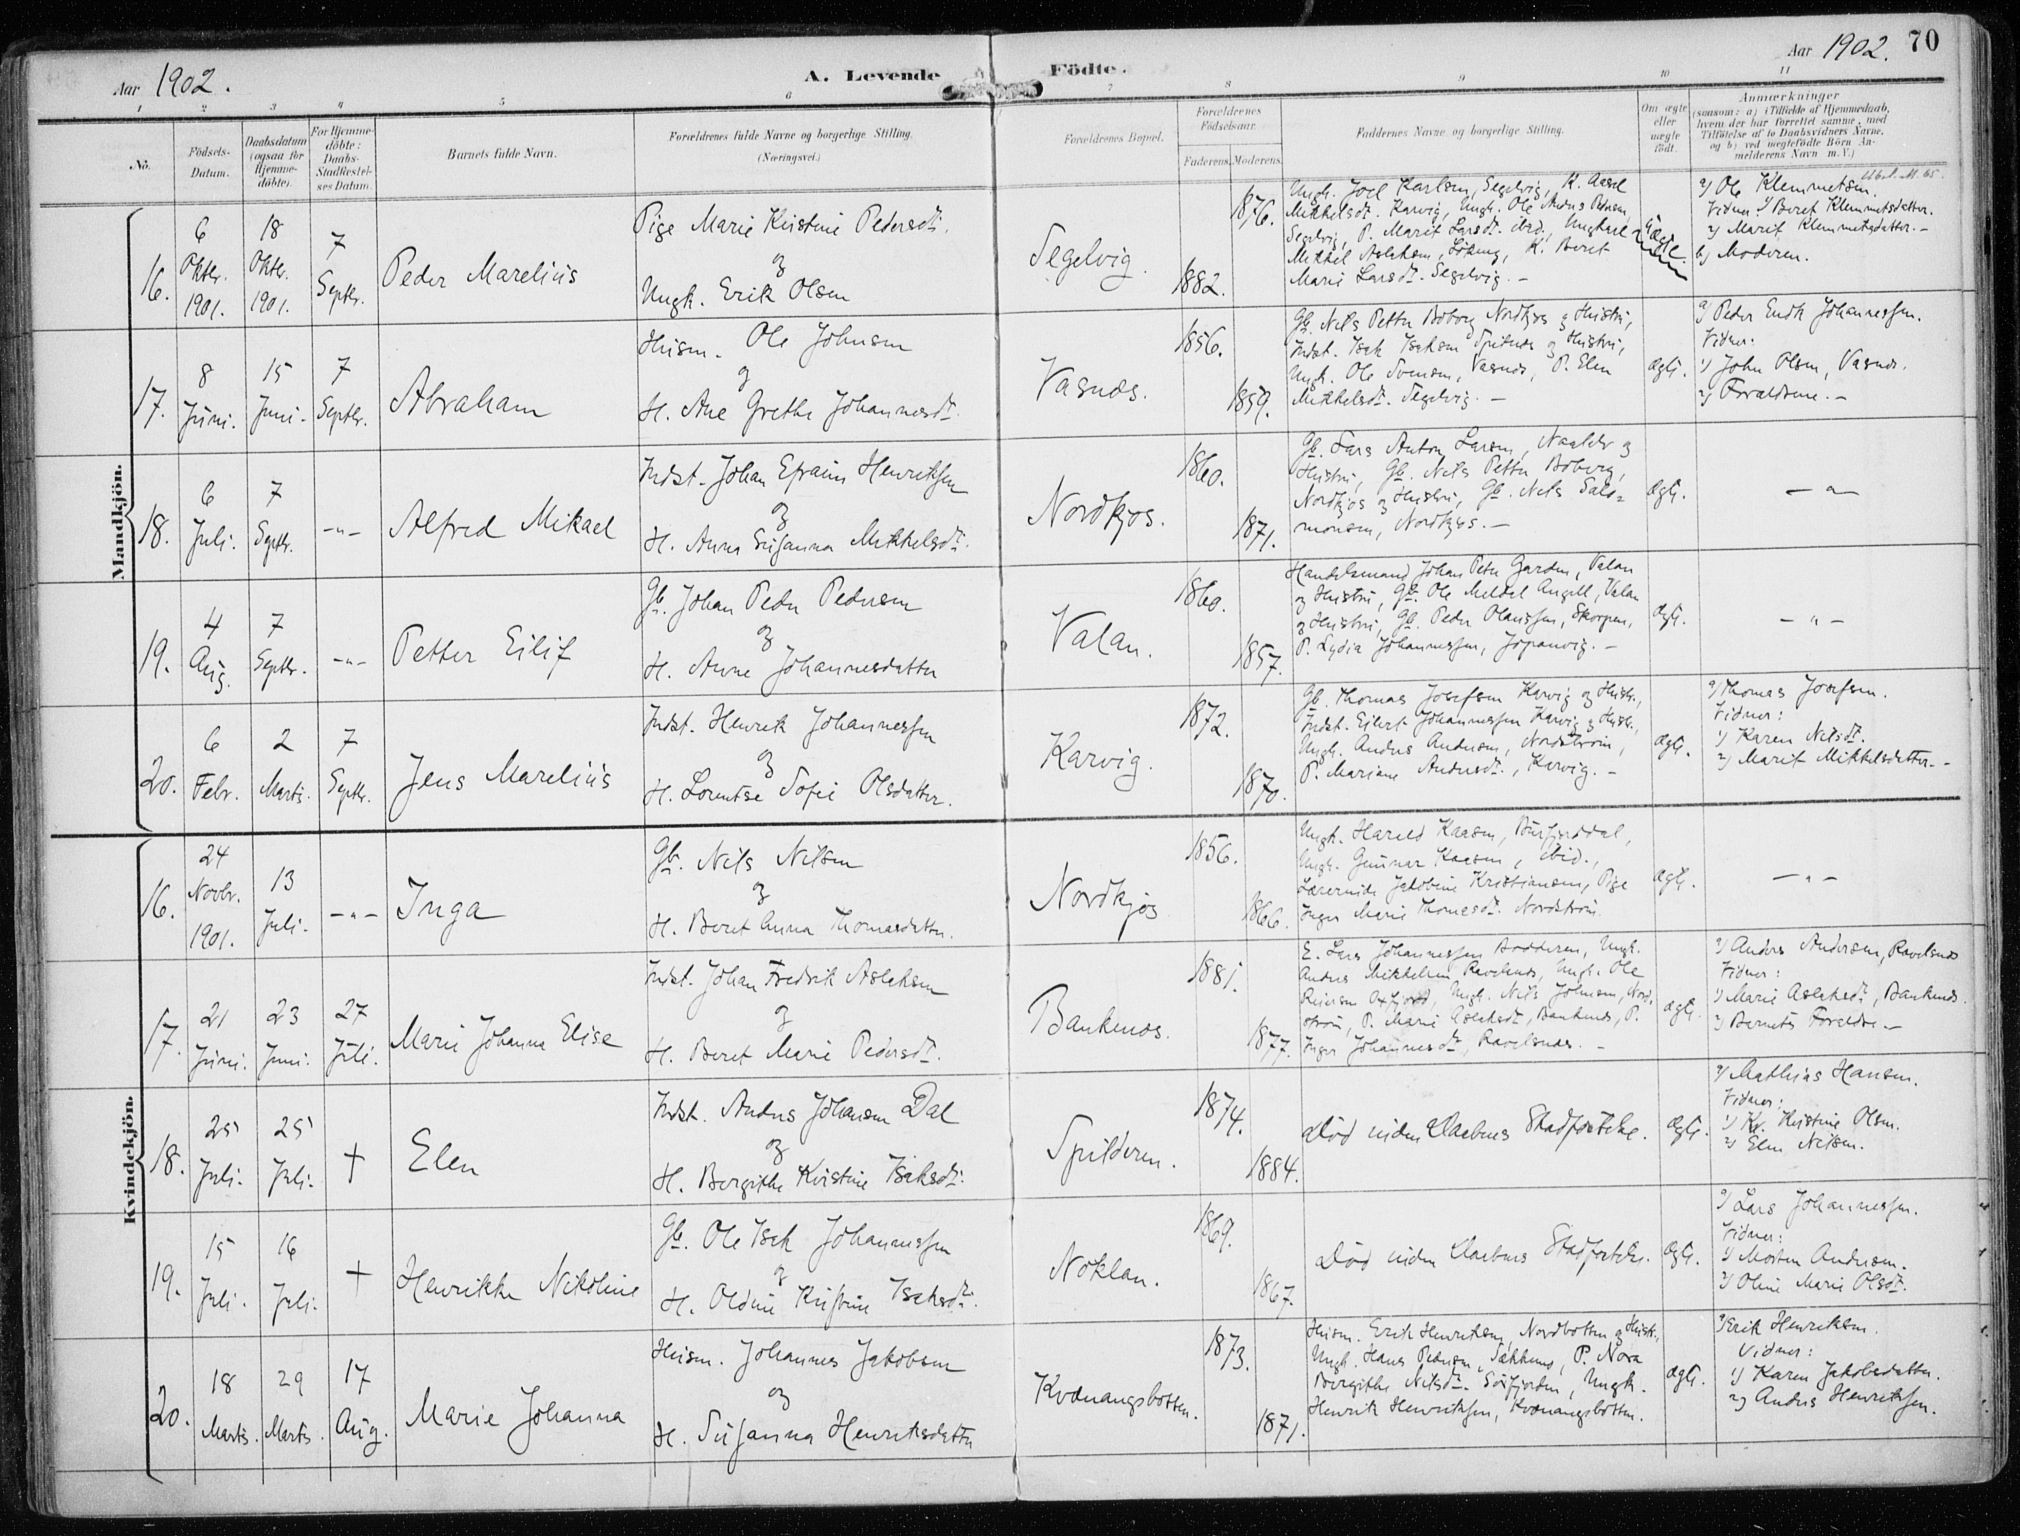 Aar 1902.
A. Levende Födte.
Aar 1902. 70
1 2 3 4 5 6 7 8 9 10 11
No.
Födsels-
Datum.
Daabsdatum
(ogsaa for
Hjemme-
döbte).
For Hjemme-
döbte:
Daabs-
Stadfæstel-
ses Datum.
Barnets fulde Navn.
Forældrenes fulde Navne og borgerlige Stilling.
(Næringsvei.)
Forældrenes Bopæl.
Forældrenes
Födselsaar.
Faderens. Moderens.
Faddernes Navne og borgerlige Stilling.
Om ægte
eller
uægte
födt.
Anmærkninger
(saasom: a) i Tilfælde af Hjemmedaab,
hvem der har forrettet samme, med
Tilföielse af to Daabsvidners Navne,
og b) ved uegtefödte Börn An-
melderens Navn m. V.)
Mandkjön.
16.
6
Oktbr.
1901.
18
Oktbr.
1901.
7
Septbr.
Peder Marelius
Pige Marie Kristine Pedersdt.
og
Ungk. Erik Olsen
Segelvig.
1876.
1882.
Ungk. Joel Karlsen, Segelvig, K. Aasel
Mikkelsdt. Karvig, Ungk. Ole Andres Pedersen,
Segelvig, P. Marit Larsdt. ibid., Ungkarl
Mikkel Aslaksen, K. Beret
Marie Larsdt. Segelvig. –
Uægte.
a) Ole Klemmetsen.
Vidner: 1) Beret Klemmetsdatter.
2) Marit Klemmetsdatter. –
b) Moderen.
17.
8
Juni.
15
Juni.
7
Septbr.
Abraham
Husm. Ole Johnsen
og
H. Ane Grethe Johannesdt.
Vasnæs.
1856.
1859.
Gb. Nils Petter Boberg Nordkjos og Hustru,
Indst. Isak Isaksen Spilderen og Hustru,
Ungk. Ole Svensen, Vasnæs, P. Elen
Mikkelsdt. Segelvig. –
ægte.
a) Peder Endk Johannessen.
Vidner:
1) John Olsen, Vasnæs.
2) Forældrene. –
18.
6
Juli.
7
Septbr.
– " –
Alfred Mikael
Indst. Johan Efraim Henriksen
og
H. Anna Susanna Mikkelsdt.
Nordkjos.
1860.
1871.
Gb. Lars Anton Larsen, og
Hustru, Gb. Nils Petter Boberg,
Nordkjos og Hustru, Gb. Nils Salo=
monsen, Nordkjos. –
ægte.
– " –
19.
4
Aug.
7
Septbr.
– " –
Petter Eilif
Gb. Johan Peder Pedersen
og
H. Anne Johannesdatter
Valan.
1860.
1857.
Handelsmand Johan Petter Garden, Valan
og Hustru, Gb. Ole Meldel Angell, Valan
og Hustru, Gb. Peder Olaussen, Skorpen,
P. Lydia Johannessen, –
ægte.
– " –
20.
6
Febr.
2
Marts.
7
Septbr.
Jens Marelius
Indst. Henrik Johannessen
og
H. Lorentse Sofie Olsdatter.
Karvig.
1872.
1870.
Gb. Thomas Josefsen Karvig og Hustr.,
Indst. Eilert Johannessen Karvig og Hustr.,
Ungk. Anders Andersen, Nordström,
P. Mariane Andersdt., Karvig. –
ægte.
a) Thomas Josefsen.
Vidner:
1) Karen Nilsdt.
2) Marit Mikkelsdatter. –
Kvindekjön.
16.
24
Novbr.
1901.
13
Juli.
– " –
Inga
Gb. Nils Nilsen
og
H. Beret Anna Thomasdatter.
Nordkjos
1856.
1866.
Ungk. Harald Kaasen, Burfjorddal,
Ungk. Gunnar Kaasen, ibid.,
Lærerinde Jakobine Kristiansen, Pige
Inger Marie Thomasdt. Nordström.
ægte.
– " –
17.
21
Juni.
23
Juni.
27
Juli.
Marie Johanna Elise
Indst. Johan Fredrik Aslaksen
og
H. Beret Marie Pedersdt.
Bankenæs.
1881.
1877.
E. Lars Johannessen Badderen, Ungk.
Anders Mikkelsen Ravelsnæs, Ungk. Ole
Reiersen Oxfjord, Ungk. Nils Johnsen, Nord-
ström, P. Marie Aslaksdt., Bankenæs, P.
Inger Johannesdt., Ravelsnæs. –
ægte.
a) Anders Andersen, Ravelsnæs
Vidner:
1) Marie Aslaksdt., Bankenæs.
2) Barnets Forældre. –
18.
25
Juli.
25
Juli.
†
Elen
Indst. Anders Johansen Dal
og
H. Bergithe Kristine Isaksdt.
Spilderen.
1874.
1884.
Död uden Daabens Stadfæstelse.
ægte.
a) Mathias Hansen.
Vidner:
1) K. Kristine Olsen.
2) Elen Nilsen.
19.
15
Juli.
16
Juli.
†
Henrikke Nikoline
Gb. Ole Isak Johannessen
og
H. Oldine Kristine Isaksdt.
Noklan.
1869.
1867.
Död uden Daabens Stadfæstelse.
ægte.
a) Lars Johannessen.
Vidner:
1) Morten Andersen.
2) Oline Marie Olsdt.
20.
18
Marts.
29
Marts.
17
Aug.
Marie Johanna
Husm. Johannes Jakobsen
og
H. Susanna Henriksdatter
Kvænangsbotten.
1873.
1871.
Husm. Erik Henriksen, Nordbotten og Hustr.,
Ungk. Hans Pedersen, P. Nora
Bergithe Nilsdt. Sörfjorden, Ungk.
Henrik Henriksen, Kvænangsbotten.
ægte.
a) Erik Henriksen.
Vidner:
1) Karen Jakobsdatter.
2) Anders Henriksen.